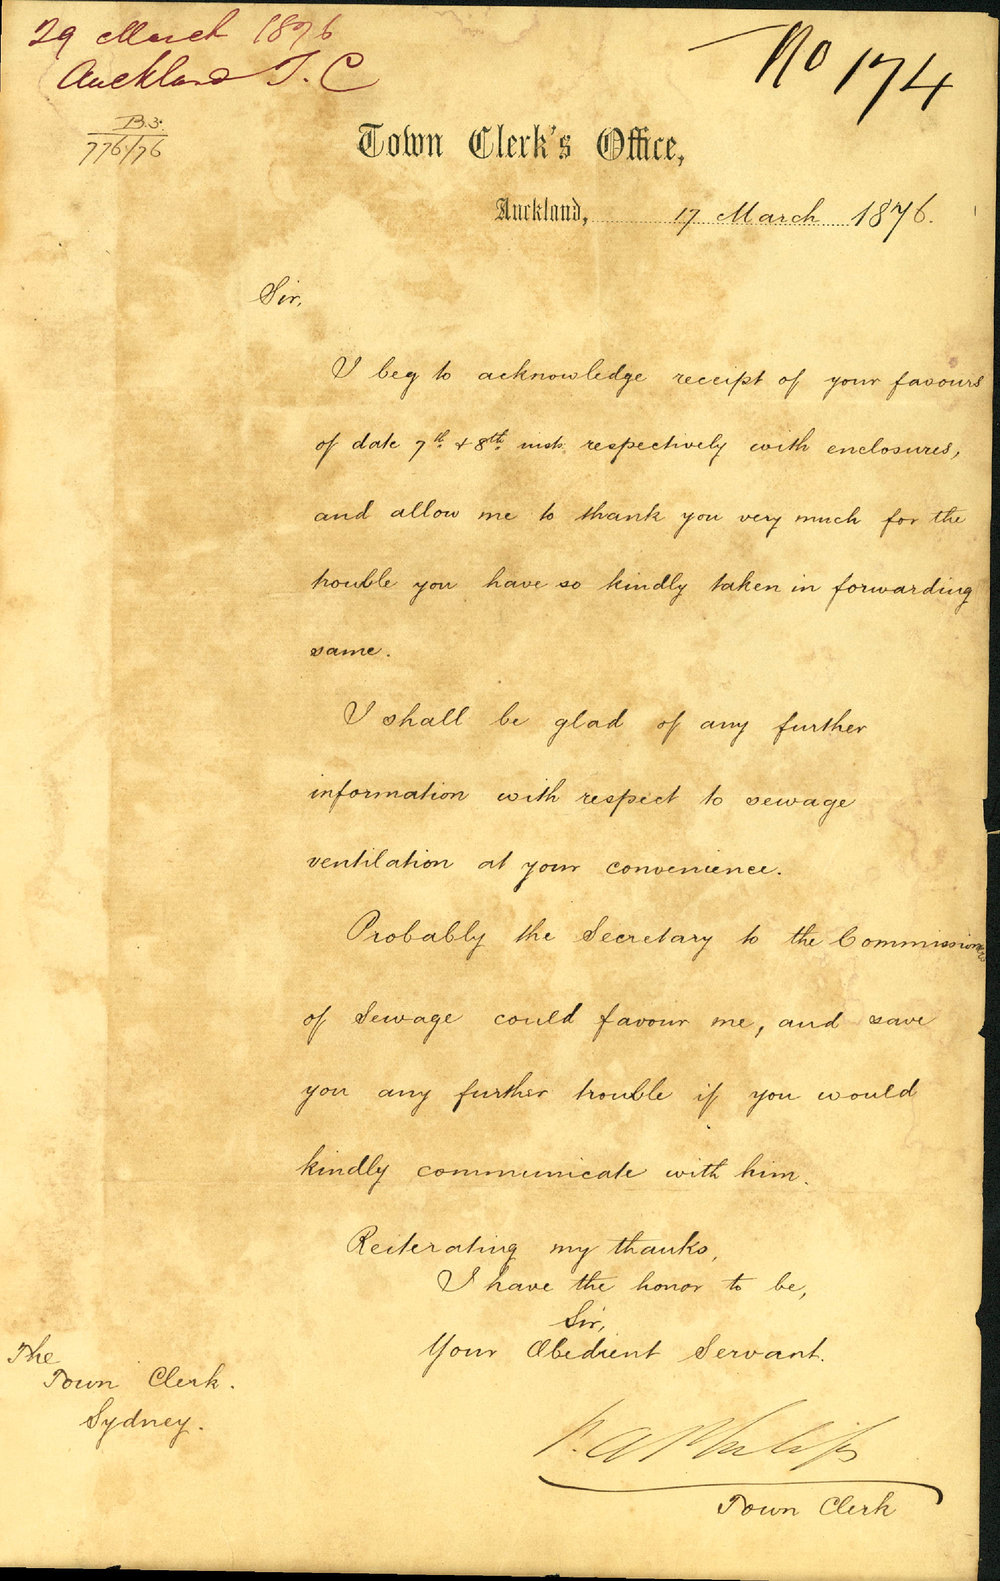 29 March 1876
Auckland T. C
No 174
B.3.
776/76
Town Clerk's Office,
Auckland, 17 March 1876.
Sir,
I beg to acknowledge receipt of your favours
of date 7th & 8th inst. respectively with enclosures,
and allow me to thank you very much for the
trouble you have so kindly taken in forwarding
same.
I shall be glad of any further
information with respect to sewage
ventilation at your convenience.
Probably the Secretary to the Commissioners
of Sewage could favour me, and save
you any further trouble if you would
kindly communicate with him.
Reiterating my thanks,
I have the honor to be,
Sir,
Your Obedient Servant.
The
Town Clerk.
Sydney.
P. A. Philips
Town Clerk